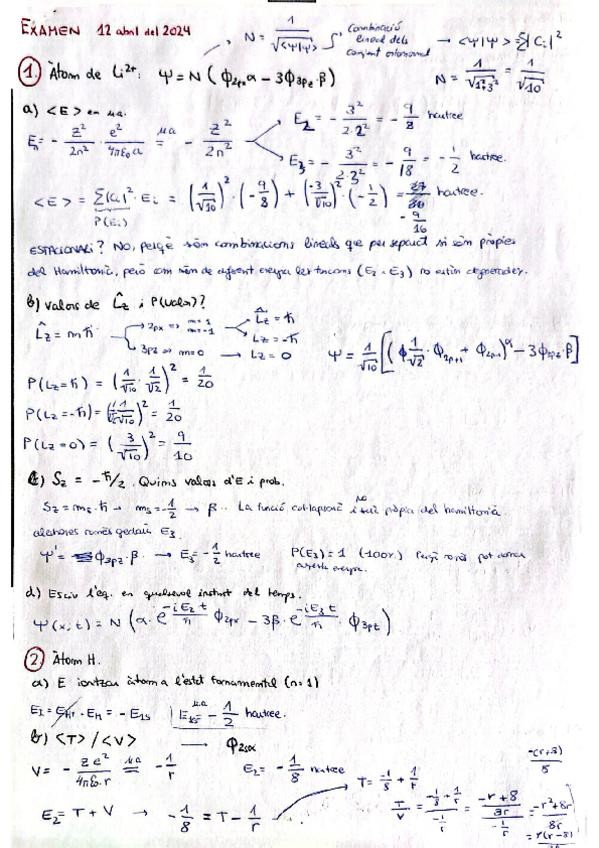 EXAMEN 12 abril del 2024
N = 1/√<Ψ|Ψ> Combinació lineal dels conjunt ortonormal → <Ψ|Ψ> = Σ|Ci|²
N = 1/√(1²+3²) = 1/√10
1. Àtom de Li²⁺. Ψ = N (ϕ2px α − 3ϕ3pz · β)
a) <E> en ua.
En = − Z²/2n² · e²/4πε0a = (ua) − Z²/2n²
E2 = − 3²/2·2² = − 9/8 hartree
E3 = − 3²/2·3² = − 9/18 = − 1/2 hartree.
<E> = Σ|Ci|² · Ei = (1/√10)² · (−9/8) + (−3/√10)² · (−1/2) = − 9/16 hartree.
P(Ei)
ESTACIONARI? No, perquè són combinacions lineals que per separat si són pròpies
del Hamiltonià, però com són de diferent energia les funcions (E2 ≠ E3) no estàn degenerades.
b) Valors de L̂z i P(valor)?
L̂z = mħ
2px => m=1 m=-1
L̂z = ħ
Lz = -ħ
3pz => m=0 → Lz = 0
Ψ = 1/√10 [(1/√2 · ϕ2p+1 + ϕ2p-1)α − 3ϕ3pz · β]
P(Lz=ħ) = (1/√10 · 1/√2)² = 1/20
P(Lz=-ħ) = (1/√2 · 1/√10)² = 1/20
P(Lz=0) = (3/√10)² = 9/10
c) Sz = −ħ/2. Quins valors d'E i prob.
Sz = ms·ħ → ms = −1/2 → β. La funció col·lapsarà i serà pròpia del hamiltonià
aleshores només quedarà E3.
Ψ' = ϕ3pz · β → E3 = −1/2 hartree P(E3) = 1 (100%) Perquè només pot donar
aquesta energia.
d) Escriu l'eq. en qualsevol instant del temps.
Ψ(x,t) = N (α · e^(−iE2t/ħ) ϕ2px − 3β · e^(−iE3t/ħ) · ϕ3pz)
2. Àtom H.
a) E ionitzar àtom a l'estat fonamental (n=1)
E1 = − En = − E1s E1s = (ua) − 1/2 hartree.
b) <T> / <V> → ϕ2sα
V = − Ze²/4πε0·r = (ua) − 1/r E2 = − 1/8 hartree
E2 = T + V → − 1/8 = T − 1/r
T = − 1/8 + 1/r
T/V = (−1/8 + 1/r)/(−1/r) = ((−r+8)/8r)/(−1/r) = −r²+8r/8r
= r(r−8)
−(r+8)/8